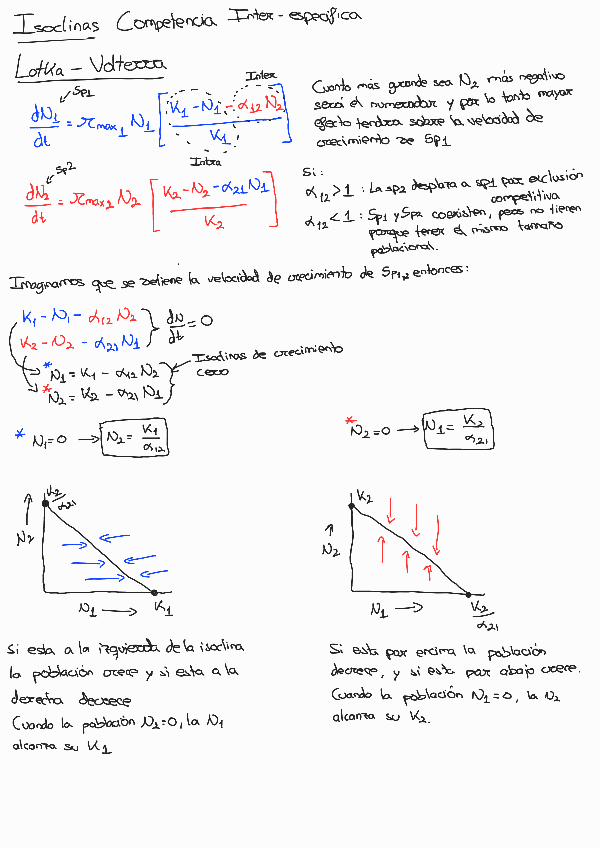 Isoclinas Competencia Inter-específica
Lotka-Volterra
Sp1
Inter
dN1/dt = rmax1 N1 [K1 - N1 - α12 N2 / K1]
Intra
Cuanto más grande sea N2 más negativo
será el numerador y por lo tanto mayor
efecto tendrá sobre la velocidad de
crecimiento de Sp1
Sp2
dN2/dt = rmax2 N2 [K2 - N2 - α21 N1 / K2]
Si:
α12 > 1 : La sp2 desplaza a sp1 por exclusión
competitiva
α12 < 1 : Sp1 y Sp2 coexisten, pero no tienen
porque tener el mismo tamaño
poblacional.
Imaginamos que se detiene la velocidad de crecimiento de Sp1,2 entonces:
K1 - N1 - α12 N2
K2 - N2 - α21 N1
dN/dt = 0
* N1 = K1 - α12 N2
* N2 = K2 - α21 N1
Isoclinas de crecimiento
cero
* N1=0 → N2 = K1/α12
* N2=0 → N1 = K2/α21
K2/α21
N2
N1 → K1
K2
N2
N1 → K2/α21
Si esta a la izquierda de la isoclina
la población crece y si esta a la
derecha decrece
Cuando la población N2=0, la N1
alcanza su K1
Si esta por encima la población
decrece, y si esta por abajo crece.
Cuando la población N1=0, la N2
alcanza su K2.